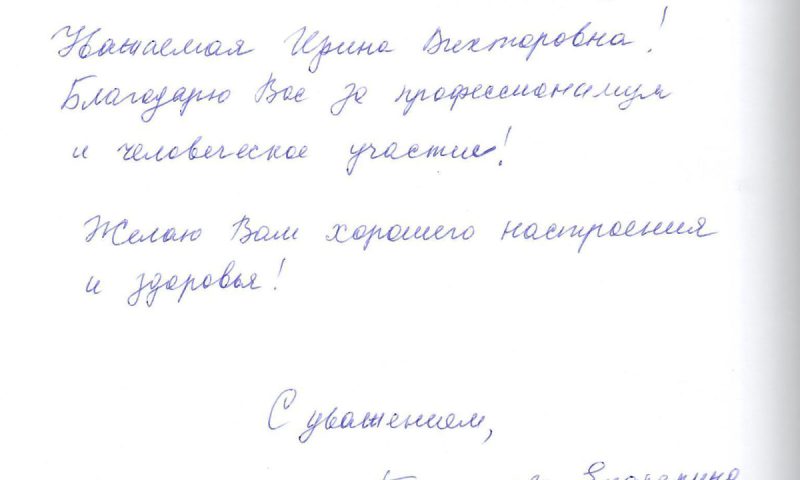 Уважаемая Ирина Викторовна!
Благодарю Вас за профессионализм
и человеческое участие!
Желаю Вам хорошего настроения
и здоровья!
С уважением,
Екатерина